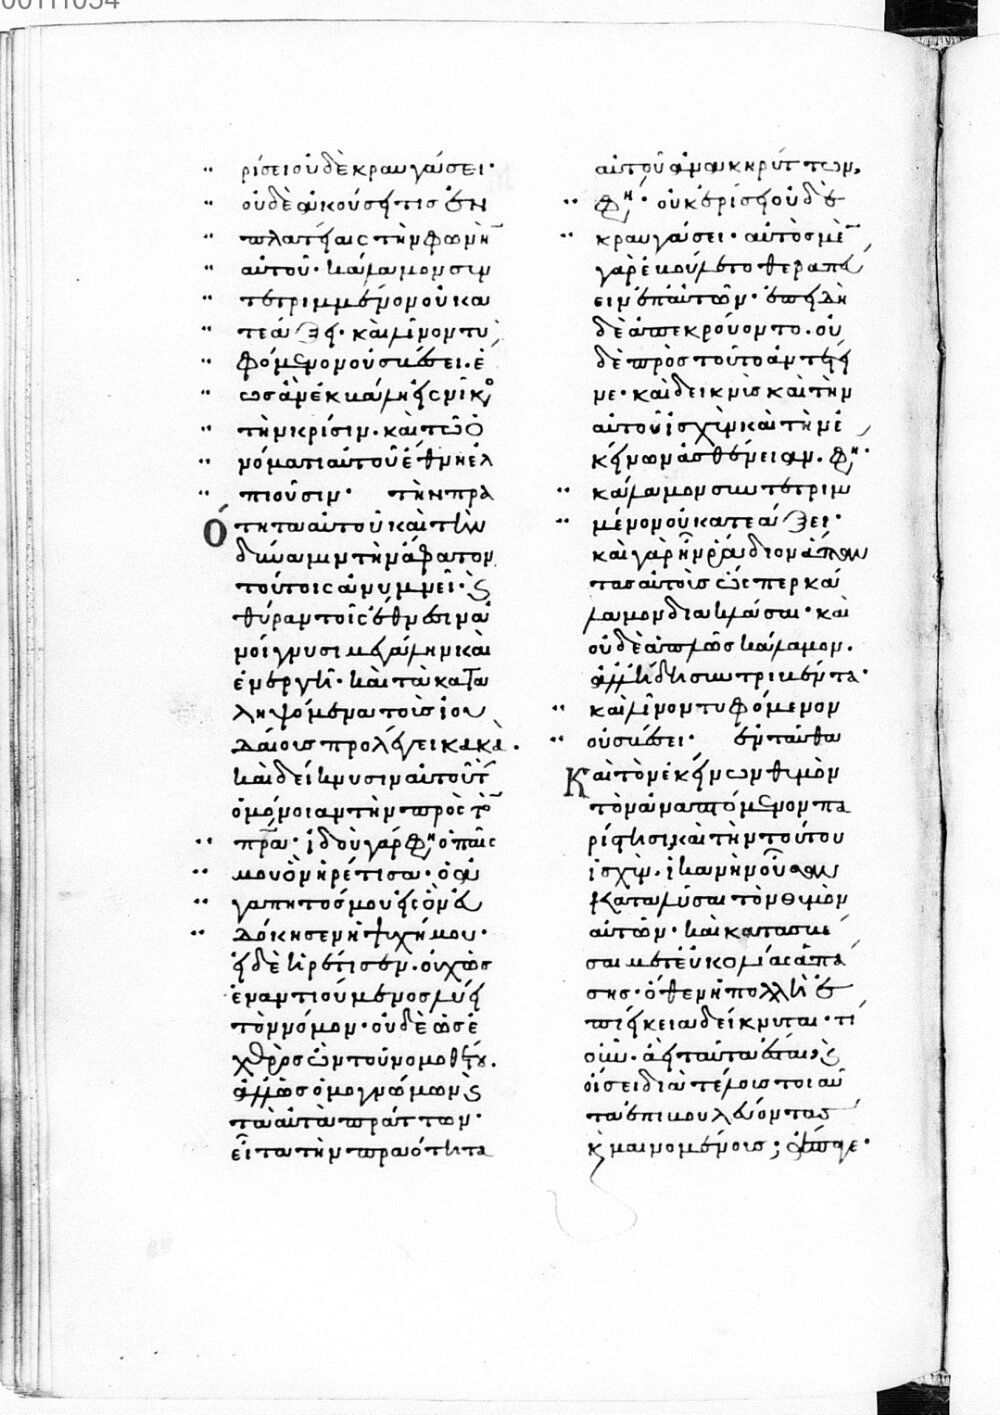 ρίσει οὐδὲ κραυγάσει·
οὐδὲ ἀκούσει τις ἐν
πλατείαις τὴν φωνὴν
αὐτοῦ· κάλαμον συν
τετριμμένον οὐ κα
τεάξει· καὶ λίνον τυ
φόμενον οὐ σβέσει· ἕ
ως ἂν ἐκβάλῃ εἰς νῖκος
τὴν κρίσιν· καὶ τῶ ὀ
νόματι αὐτοῦ ἔθνη ἐλ
πιοῦσιν· τὴν πρα
ότητα αὐτοῦ καὶ τὴν
δύναμιν τὴν ἄφατον
τούτοις ἀνυμνεῖ· καὶ
θύραν τοῖς ἔθνεσιν ἀ
νοίγνυσι μεγάλην καὶ
ἐνεργῆ· καὶ τὰ κατα
ληψόμενα τοὺς ἰου
δαίους προλέγει κακά·
καὶ δείκνυσιν αὐτοῦ τ
ὁμόνοιαν τὴν πρὸς τὸν
πρα· ἰδοὺ γάρ φη ὁ παῖς
μου ὃν ἡρέτισα· ὁ ἀ
γαπητός μου εἰς ὃν εὐ
δόκησεν ἡ ψυχή μου·
εἰ δὲ ἡρέτισεν· οὐχ ὡς
ἐναντιούμενος λύει
τὸν νόμον· οὐδὲ ὡς ἐ
χθρὸς ὢν τοῦ νομοθέτου·
ἀλλ' ὡς ὁμογνωμῶν καὶ
τὰ αὐτὰ πράττων·
εἶτα τὴν πραότητα
αὐτοῦ ἀνακηρύττων,
φη· οὐκ ἐρίσει οὐδὲ
κραυγάσει· αὐτὸς μὲν
γὰρ ἐβούλετο θεραπεύ
ειν ἐπ' αὐτῶν· ἐπειδὴ
δὲ ἀπεκρούοντο· οὐ
δὲ πρὸς τοῦτο ἀντέτει
νε· καὶ δεικνὺς καὶ τὴν
αὐτοῦ ἰσχὺν καὶ τὴν ἐ
κείνων ἀσθένειαν· φη·
κάλαμον συντετριμ
μένον οὐ κατεάξει·
καὶ γὰρ ἦν ῥάδιον ἅπαν
τας αὐτοὺς ὥσπερ κά
λαμον διακλάσαι· καὶ
οὐδὲ ἁπλῶς κάλαμον·
ἀλλ' ἤδη συντριβέντα·
καὶ λίνον τυφόμενον
οὐ σβέσει· ἐνταῦθα
καὶ τὸν ἐκείνων θυμὸν
τὸν ἀναπτόμενον πα
ρίστησι, καὶ τὴν τούτου
ἰσχὺν· ἱκανὴν οὖσαν
καταλῦσαι τὸν θυμὸν
αὐτῶν· καὶ κατασβέ
σαι μετ' εὐκολίας ἁπά
σης· ὅθεν ἡ πολλὴ ἐ
πιείκεια δείκνυται· τί
οὖν· ἀεὶ ταῦτα ἔσται· καὶ
οἴσει διὰ τέλους τοιαῦ
τα ἐπιβουλεύοντας
κ μαινομένοις; ἄπαγε·